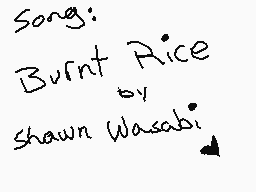 Song:
Burnt Rice
by
Shawn Wasabi